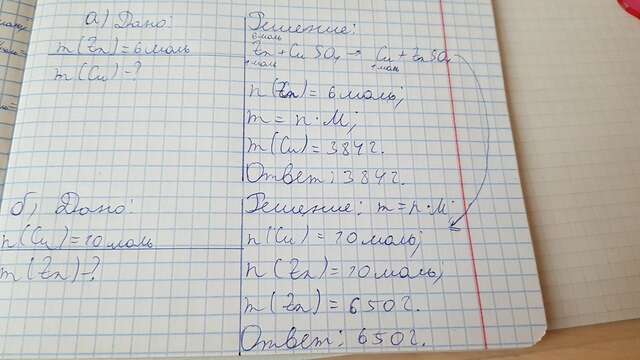 а) Дано:
m(Zn)=6 моль
m(Cu)-?
Решение:
6 моль
Zn + CuSO4 → Cu + ZnSO4
1 моль 1 моль
n(Zn)=6 моль;
m=n·M;
m(Cu)=384г.
Ответ: 384г.
б) Дано:
n(Cu)=10 моль
m(Zn)-?
Решение: m=n·M;
n(Cu)=10 моль;
n(Zn)=10 моль;
m(Zn)=650г.
Ответ: 650г.